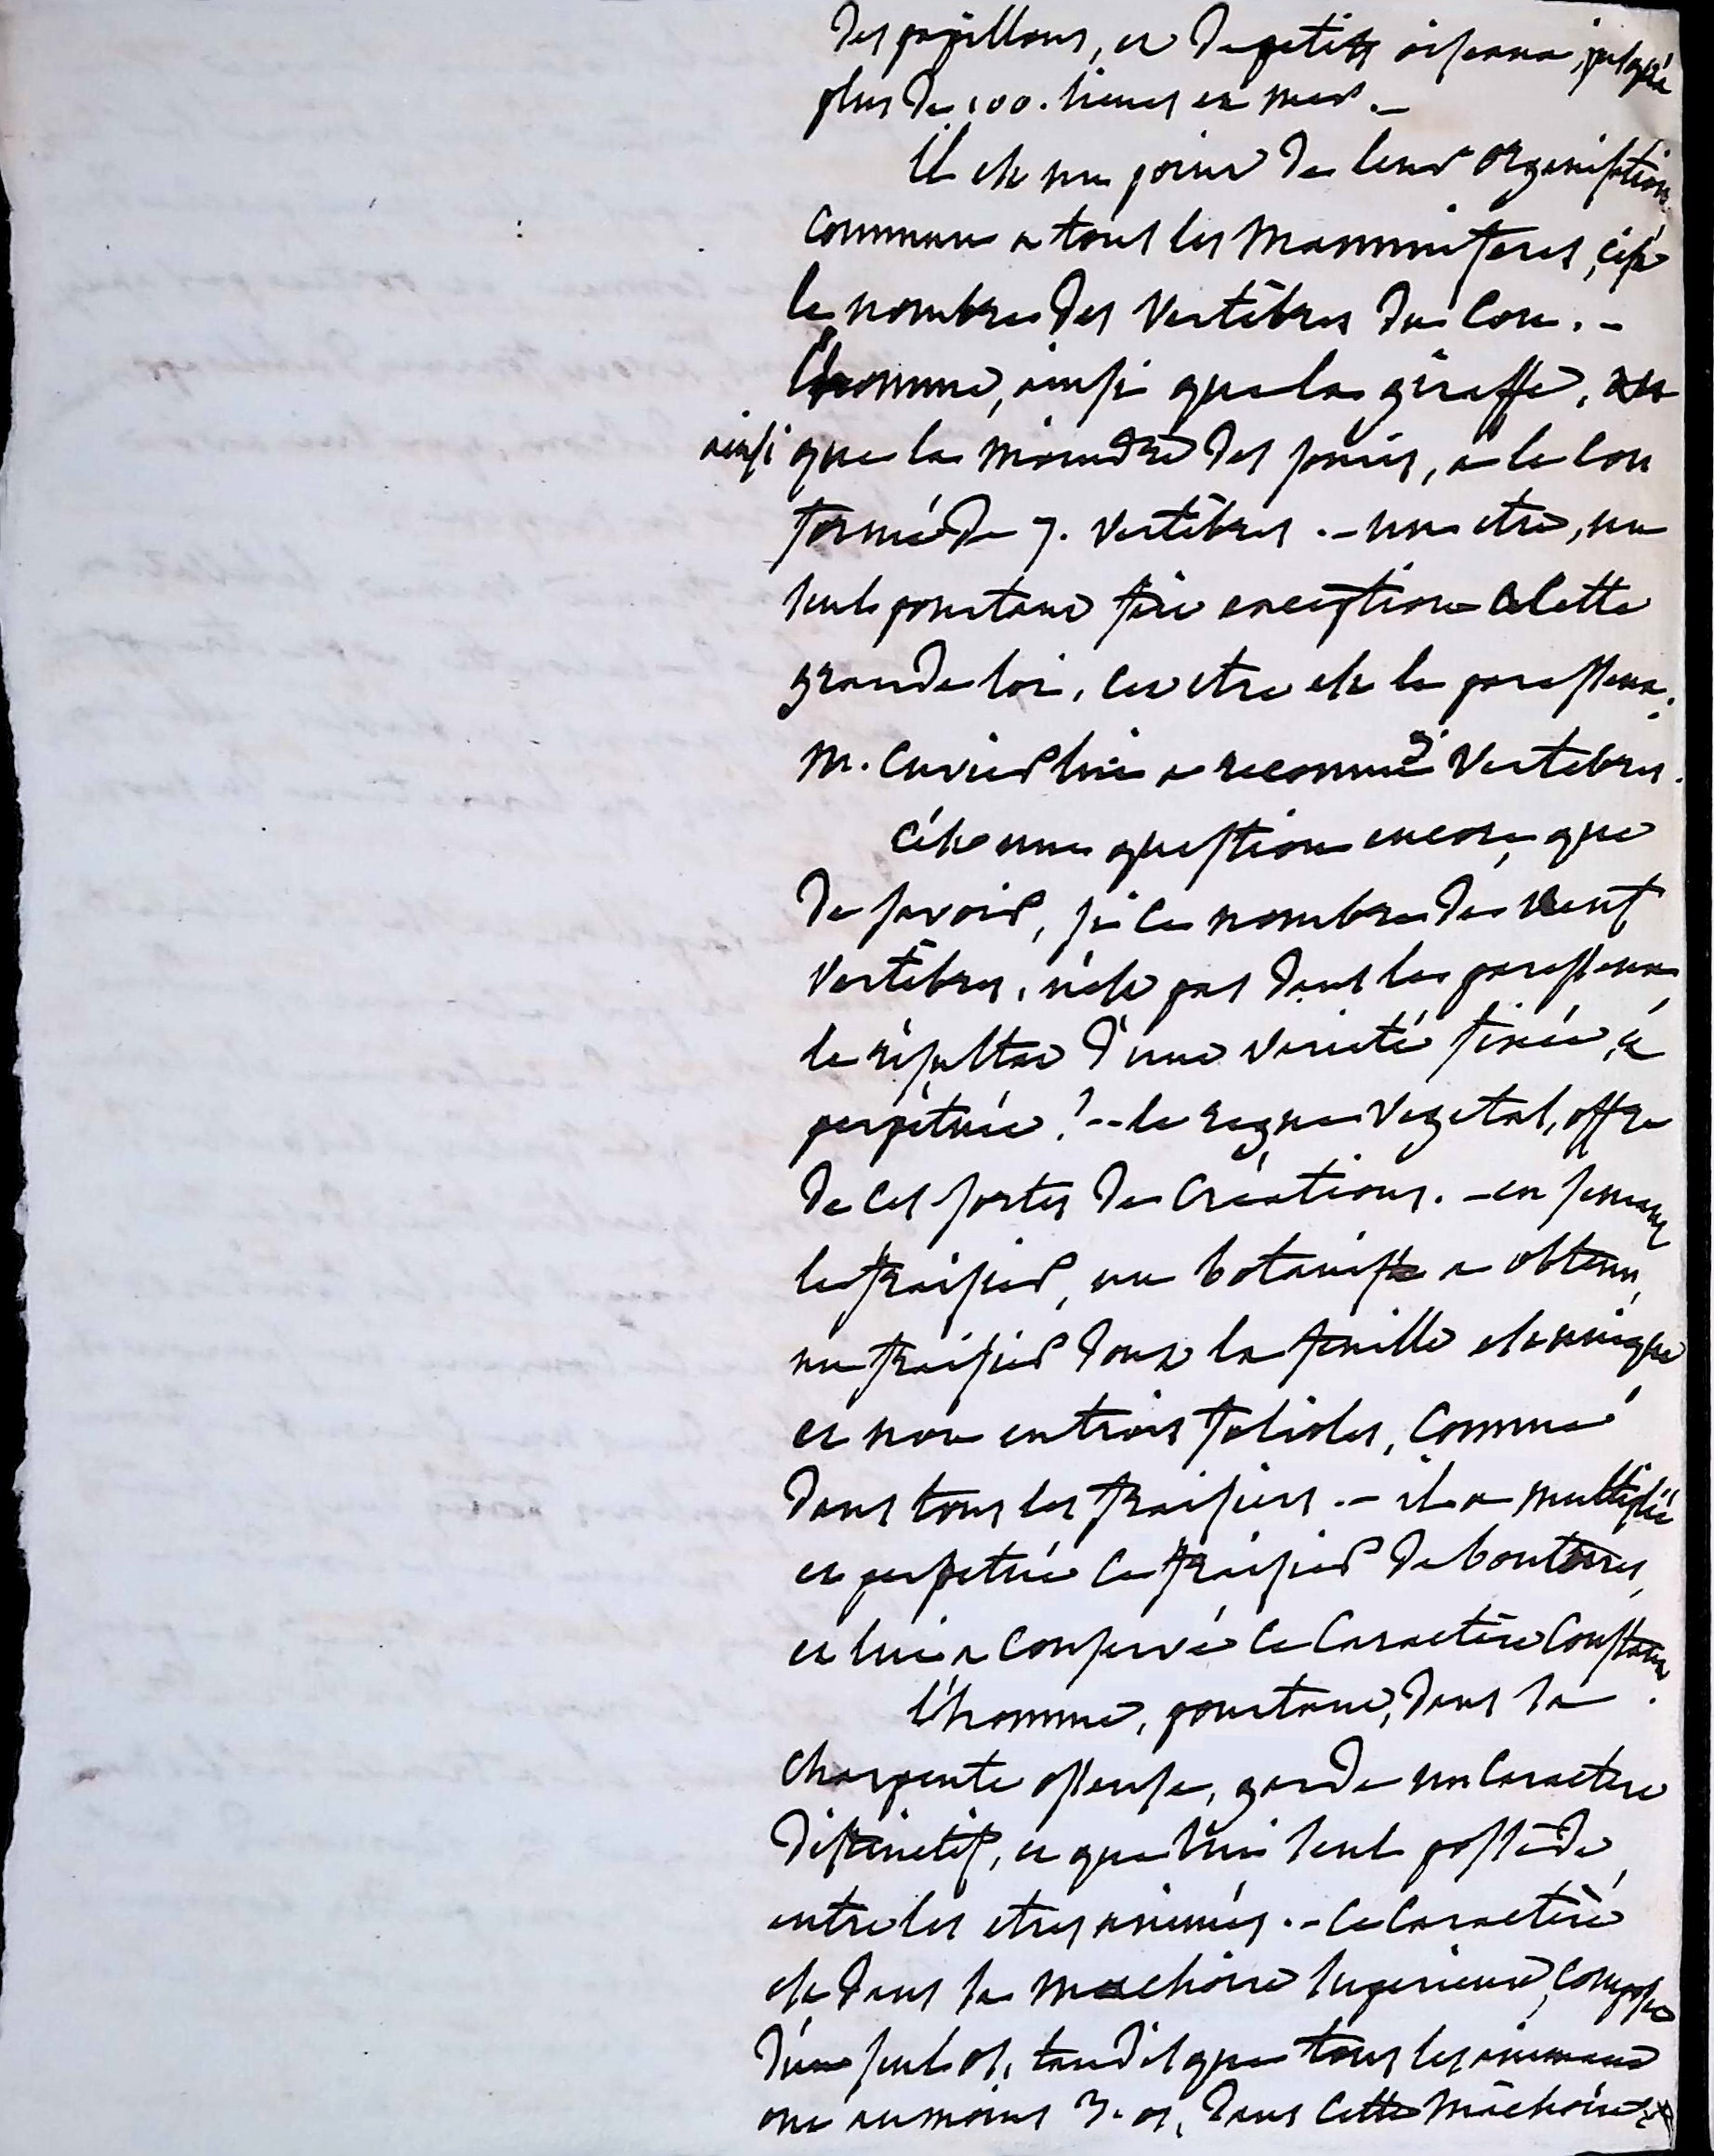 des papillons, et de petits oiseaux, jusqu'à
plus de 100. lieues en mer. -
Il est un point de leur organisation
commun a tous les mammiferes, c'est
le nombre des vertèbres du Cou. -
L'homme, ainsi que la giraffe,
ainsi que la moindre des souris, a le Cou
formé de 7. vertèbres. - un etre, un
seul pourtant fait exception a Cette
grande loi, Cet etre est le paresseux.
M. Cuvier lui a reconnu 9. vertebres.
C'est une question encore, que
de savoir, si Ce nombre de neuf
vertèbres, n'est pas dans les paresseux
le résultat d'une varieté fixée, et
perpétuée ? - - le regne vegetal, offre
de Ces sortes de Créations. - en semant
le fraisier, un botaniste a obtenu,
un fraisier dont la feuille est unique
et non en trois folioles, Comme
dans tous les fraisiers. - il a multiplié
et perpetué Ce fraisier de boutures,
et lui a Conservé Ce Caractère Constant.
L'homme, pourtant, dans sa
Charpente osseuse, garde un Caractere
distinctif, et que lui seul possède,
entre les etres animés. - Ce Caractère
est dans sa machoire superieure, Composée
d'un seul os, tandis que tous les animaux
ont au moins 3. os, dans Cette mâchoire.